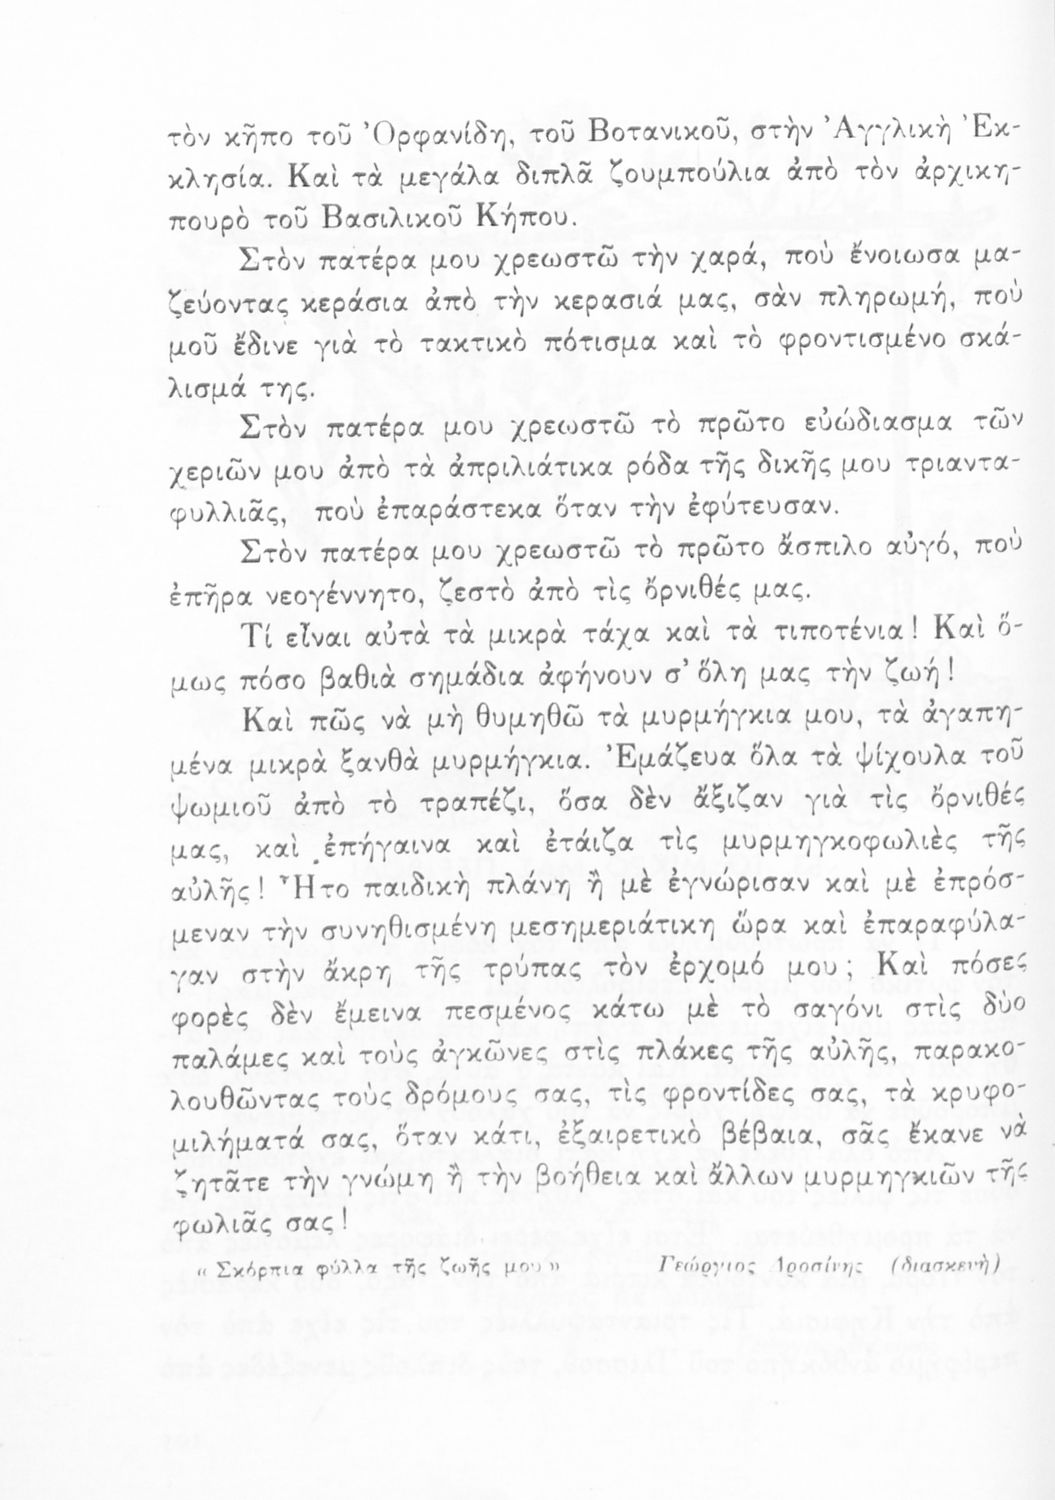 τὸν κῆπο τοῦ Ὀρφανίδη, τοῦ Βοτανικοῦ, στὴν Ἀγγλικὴ Ἐκ-
κλησία. Καὶ τὰ μεγάλα διπλᾶ ζουμπούλια ἀπὸ τὸν ἀρχικη-
πουρὸ τοῦ Βασιλικοῦ Κήπου.
Στὸν πατέρα μου χρεωστῶ τὴν χαρά, ποὺ ἔνοιωσα μα-
ζεύοντας κεράσια ἀπὸ τὴν κερασιά μας, σὰν πληρωμή, ποὺ
μοῦ ἔδινε γιὰ τὸ τακτικὸ πότισμα καὶ τὸ φροντισμένο σκά-
λισμά της.
Στὸν πατέρα μου χρεωστῶ τὸ πρῶτο εὐώδιασμα τῶν
χεριῶν μου ἀπὸ τὰ ἀπριλιάτικα ρόδα τῆς δικῆς μου τριαντα-
φυλλιᾶς, ποὺ ἐπαράστεκα ὅταν τὴν ἐφύτευσαν.
Στὸν πατέρα μου χρεωστῶ τὸ πρῶτο ἄσπιλο αὐγό, ποὺ
ἐπῆρα νεογέννητο, ζεστὸ ἀπὸ τὶς ὄρνιθές μας.
Τί εἶναι αὐτὰ τὰ μικρὰ τάχα καὶ τὰ τιποτένια! Καὶ ὅ-
μως πόσο βαθιὰ σημάδια ἀφήνουν σ’ ὅλη μας τὴν ζωή!
Καὶ πῶς νὰ μὴ θυμηθῶ τὰ μυρμήγκια μου, τὰ ἀγαπη-
μένα μικρὰ ξανθὰ μυρμήγκια. Ἐμάζευα ὅλα τὰ ψίχουλα τοῦ
ψωμιοῦ ἀπὸ τὸ τραπέζι, ὅσα δὲν ἄξιζαν γιὰ τὶς ὄρνιθές
μας, καὶ ἐπήγαινα καὶ ἐτάιζα τὶς μυρμηγκοφωλιὲς τῆς
αὐλῆς! Ἦτο παιδικὴ πλάνη ἢ μὲ ἐγνώρισαν καὶ μὲ ἐπρόσ-
μεναν τὴν συνηθισμένη μεσημεριάτικη ὥρα καὶ ἐπαραφύλα-
γαν στὴν ἄκρη τῆς τρύπας τὸν ἐρχομό μου; Καὶ πόσες
φορὲς δὲν ἔμεινα πεσμένος κάτω μὲ τὸ σαγόνι στὶς δύο
παλάμες καὶ τοὺς ἀγκῶνες στὶς πλάκες τῆς αὐλῆς, παρακο-
λουθῶντας τοὺς δρόμους σας, τὶς φροντίδες σας, τὰ κρυφο-
μιλήματά σας, ὅταν κάτι, ἐξαιρετικὸ βέβαια, σᾶς ἔκανε νὰ
ζητᾶτε τὴν γνώμη ἢ τὴν βοήθεια καὶ ἄλλων μυρμηγκιῶν τῆς
φωλιᾶς σας!
« Σκόρπια φύλλα τῆς ζωῆς μου » Γεώργιος Δροσίνης (διασκευὴ)